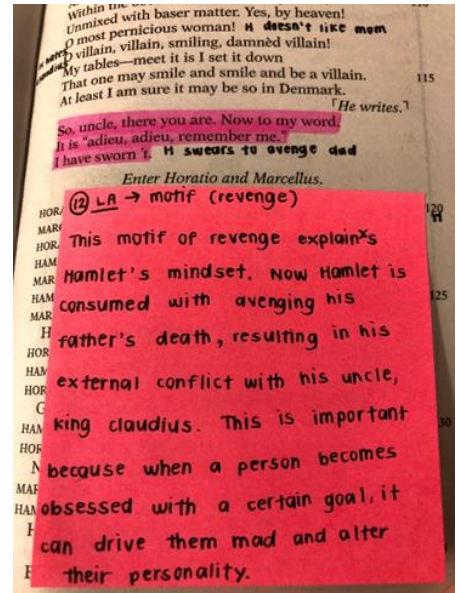 Within the
Unmixed with baser matter. Yes, by heaven!
O most pernicious woman! H doesn't like mom
H hates claudius O villain, villain, smiling, damnèd villain!
My tables—meet it is I set it down
That one may smile and smile and be a villain. 115
At least I am sure it may be so in Denmark.
⌜He writes.⌝
So, uncle, there you are. Now to my word.
It is "adieu, adieu, remember me."
I have sworn 't. H swears to avenge dad
Enter Horatio and Marcellus.
HOR 120
MAR
HOR
HAM
MAR
HAM 25
MAR
H
HOR
HAM
HOR
G
HAM 30
HOR
N
MAR
HAM
H
E
12 LA → motif (revenge)
This motif of revenge explain×s
Hamlet's mindset. Now Hamlet is
consumed with avenging his
father's death, resulting in his
external conflict with his uncle,
king claudius. This is important
because when a person becomes
obsessed with a certain goal, it
can drive them mad and alter
their personality.